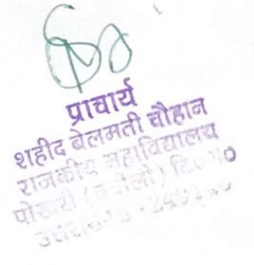 प्राचार्य
शहीद बेलमती चौहान
राजकीय महाविद्यालय
पोखरी (क्वीली) टि०ग०